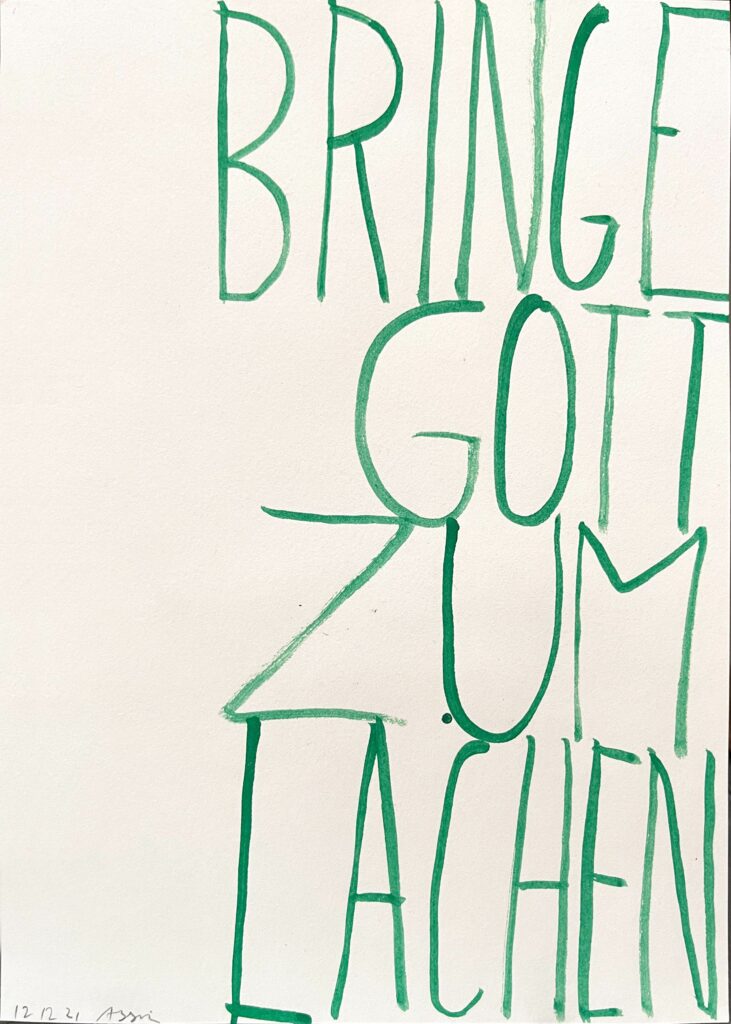 BRINGE
GOTT
ZUM
LACHEN
12 12 21